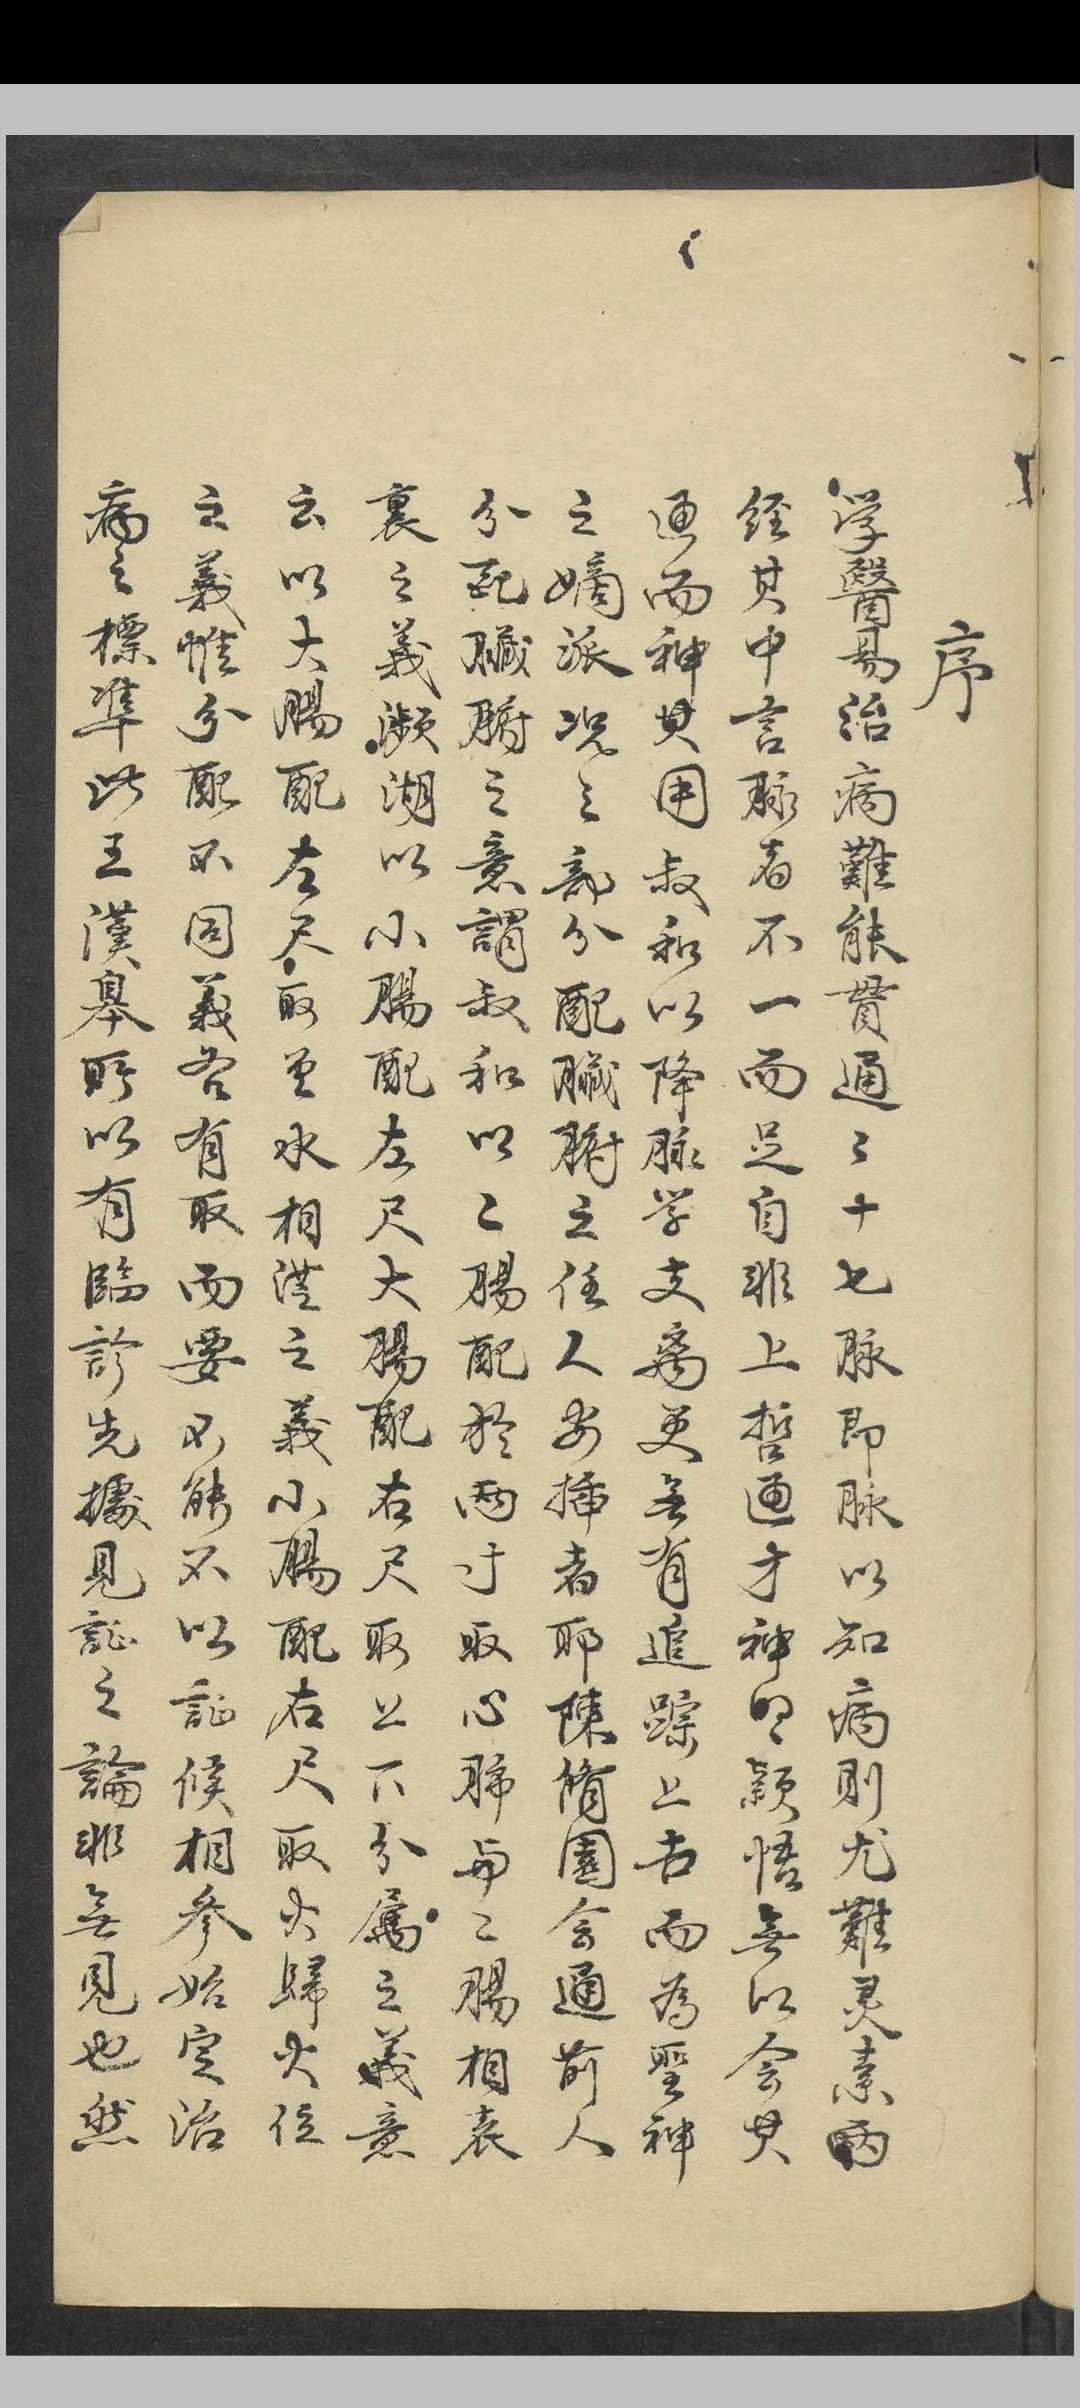 序
学醫易治病難能貫通二十七脉即脉以知病則尤難灵素両
経其中言脉者不一而足自非上哲通才神明颖悟無以会其
通而神其用叔和以降脉学支离更无有追踪上古而為聖神
之嫡派况之部分配臓腑之任人安插者耶陳脩園会通前人
分配臓腑之意謂叔和以二腸配於両寸取心肺與二腸相表
裏之義瀕湖以小腸配左尺大腸配右尺取上下分属之義意
云以大腸配左尺取金水相涵之義小腸配右尺取火歸火位
之義惟分配不同義各有取而要不能不以証候相参始定治
病之標準此王漢皋所以有臨診先據見証之論非無見也然